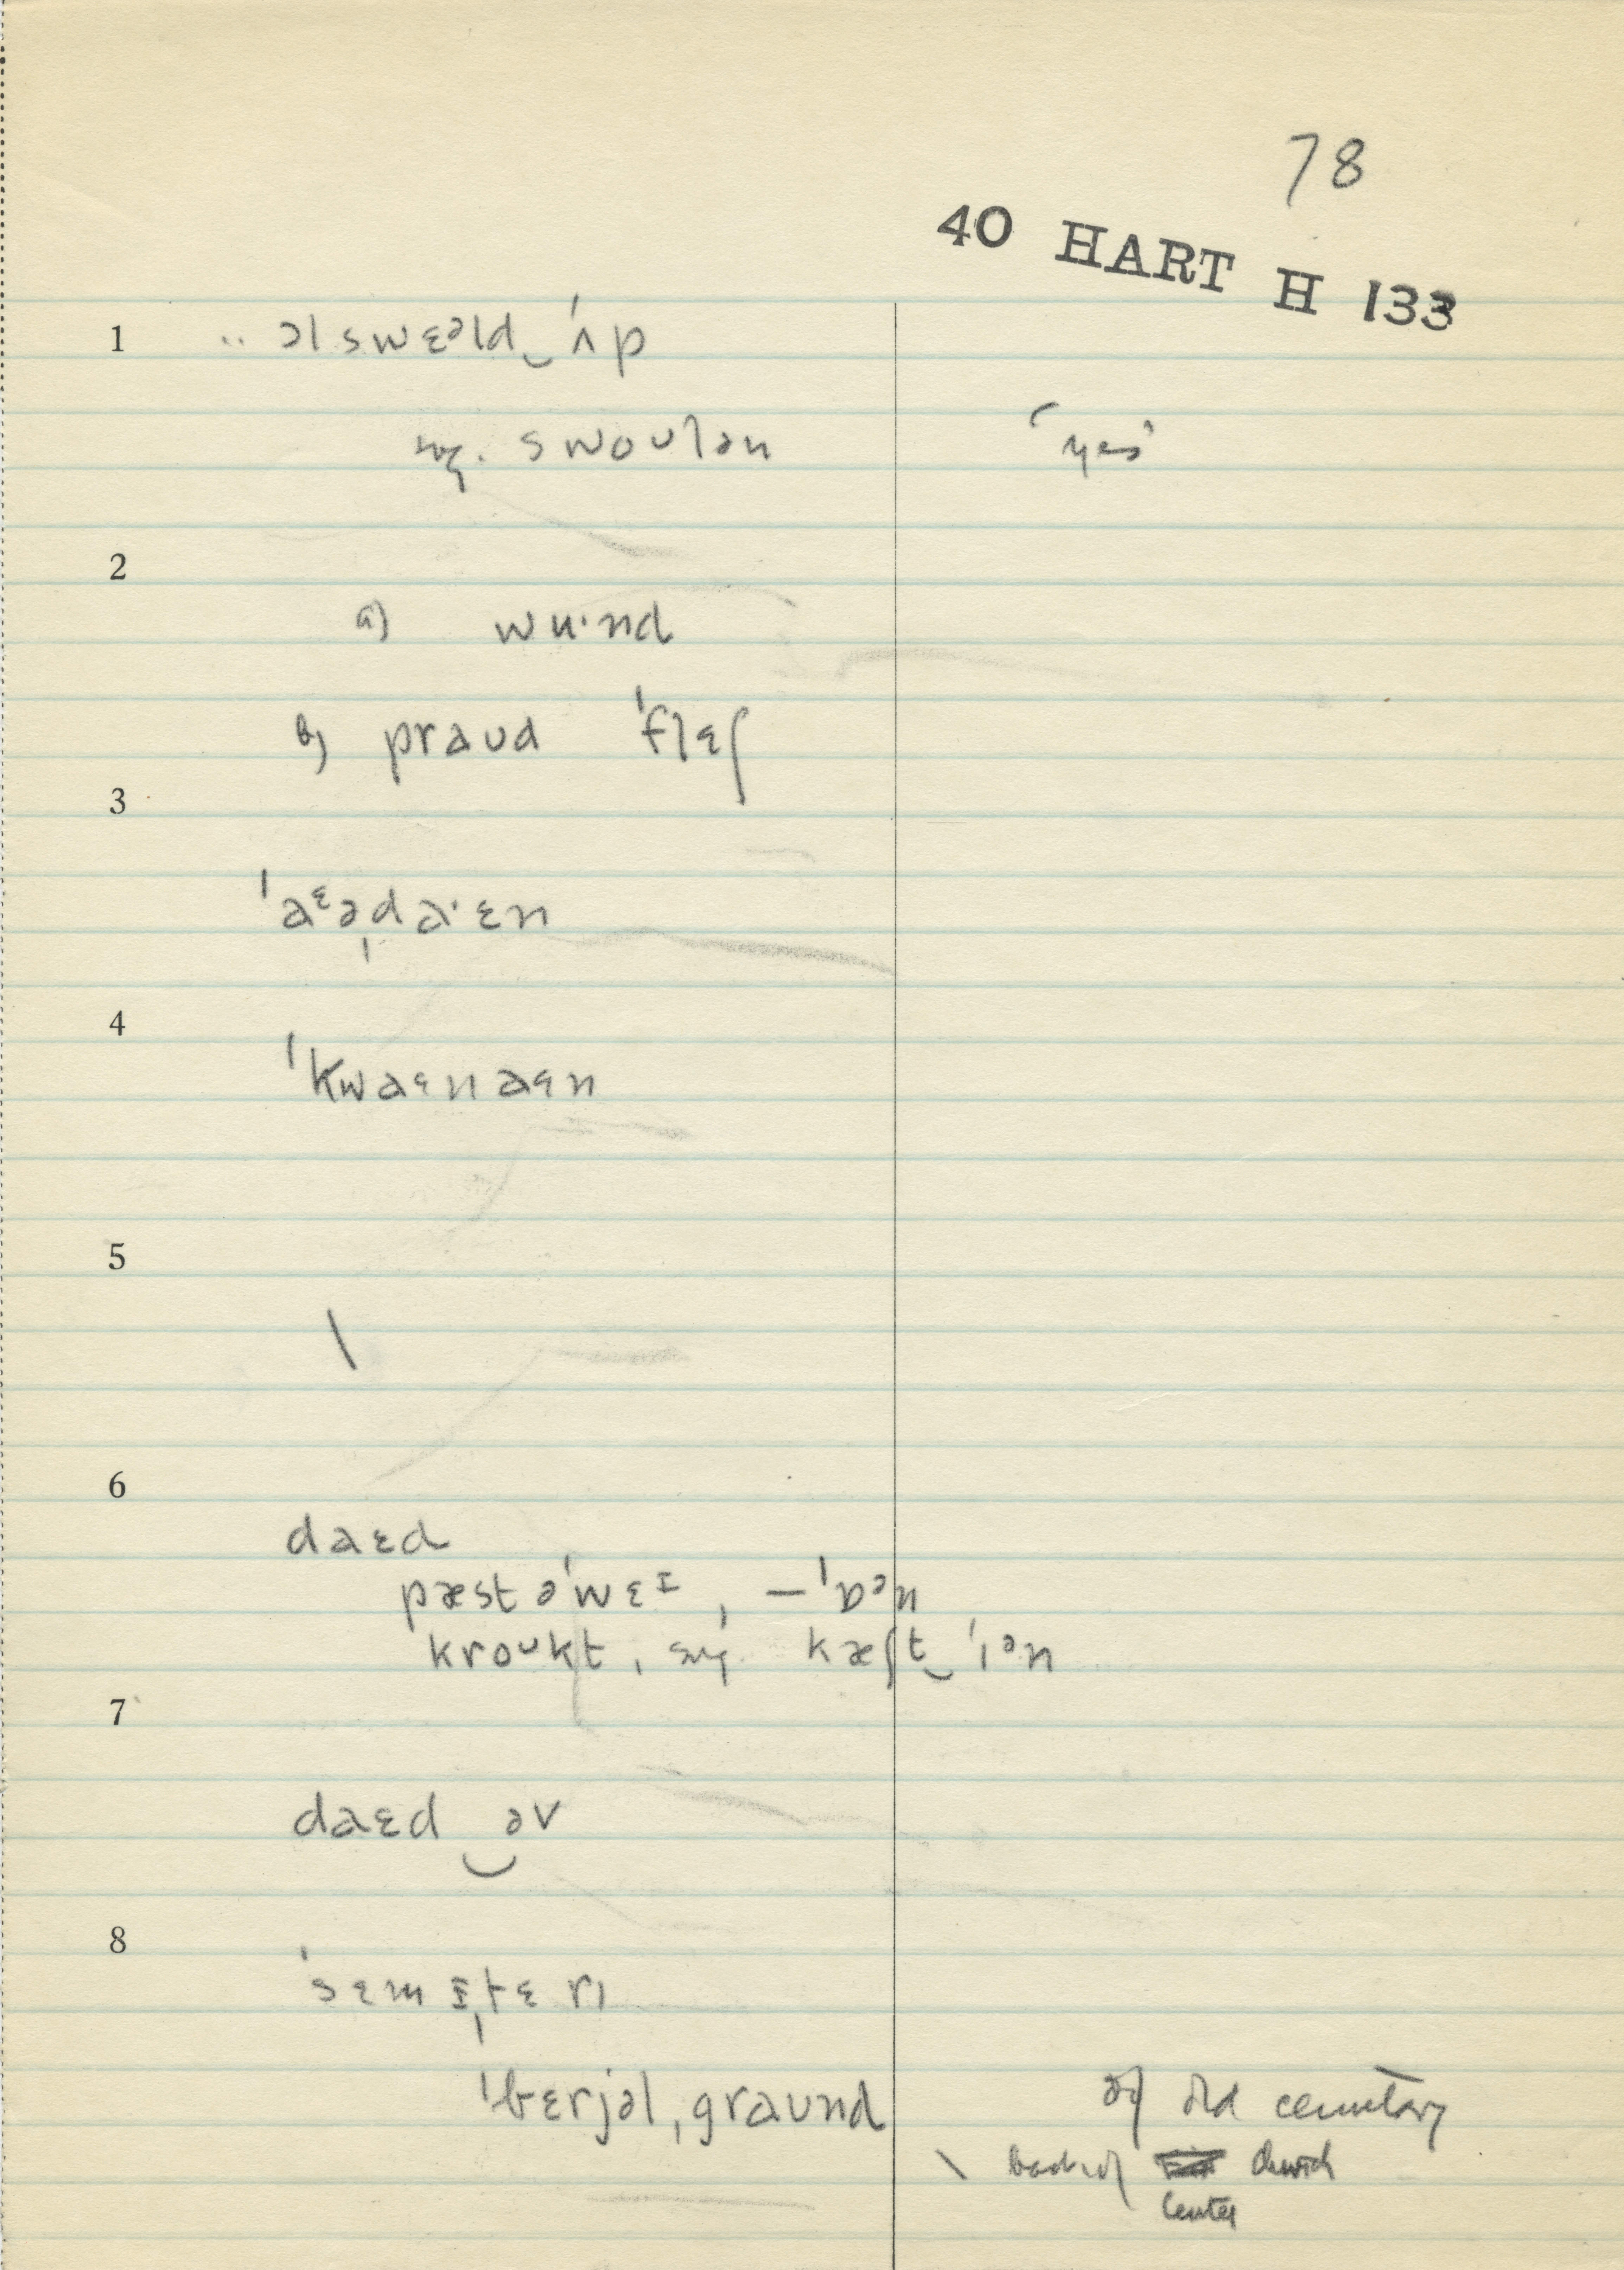 78
40 HART H 133
1 .. əl swɛəld‿ˈʌp
swoʊlən "yes"
2
a) wu·nd
b) praʊd ˈflɛʃ
3
ˈaᵋəˌda·ɛn
4
ˈkwaɛnaɛn
5
\
6
daɛd
pæst əˈwɛɪ, –ˈɒᵊn
kroʊkt, kæʃt‿ˈɪᵊn
7
daɛd‿əv
8
ˈsɛmɪˌtɛrɪ
ˈbɛrjəlˌgraʊnd of old cemetary
\ back of church
Center